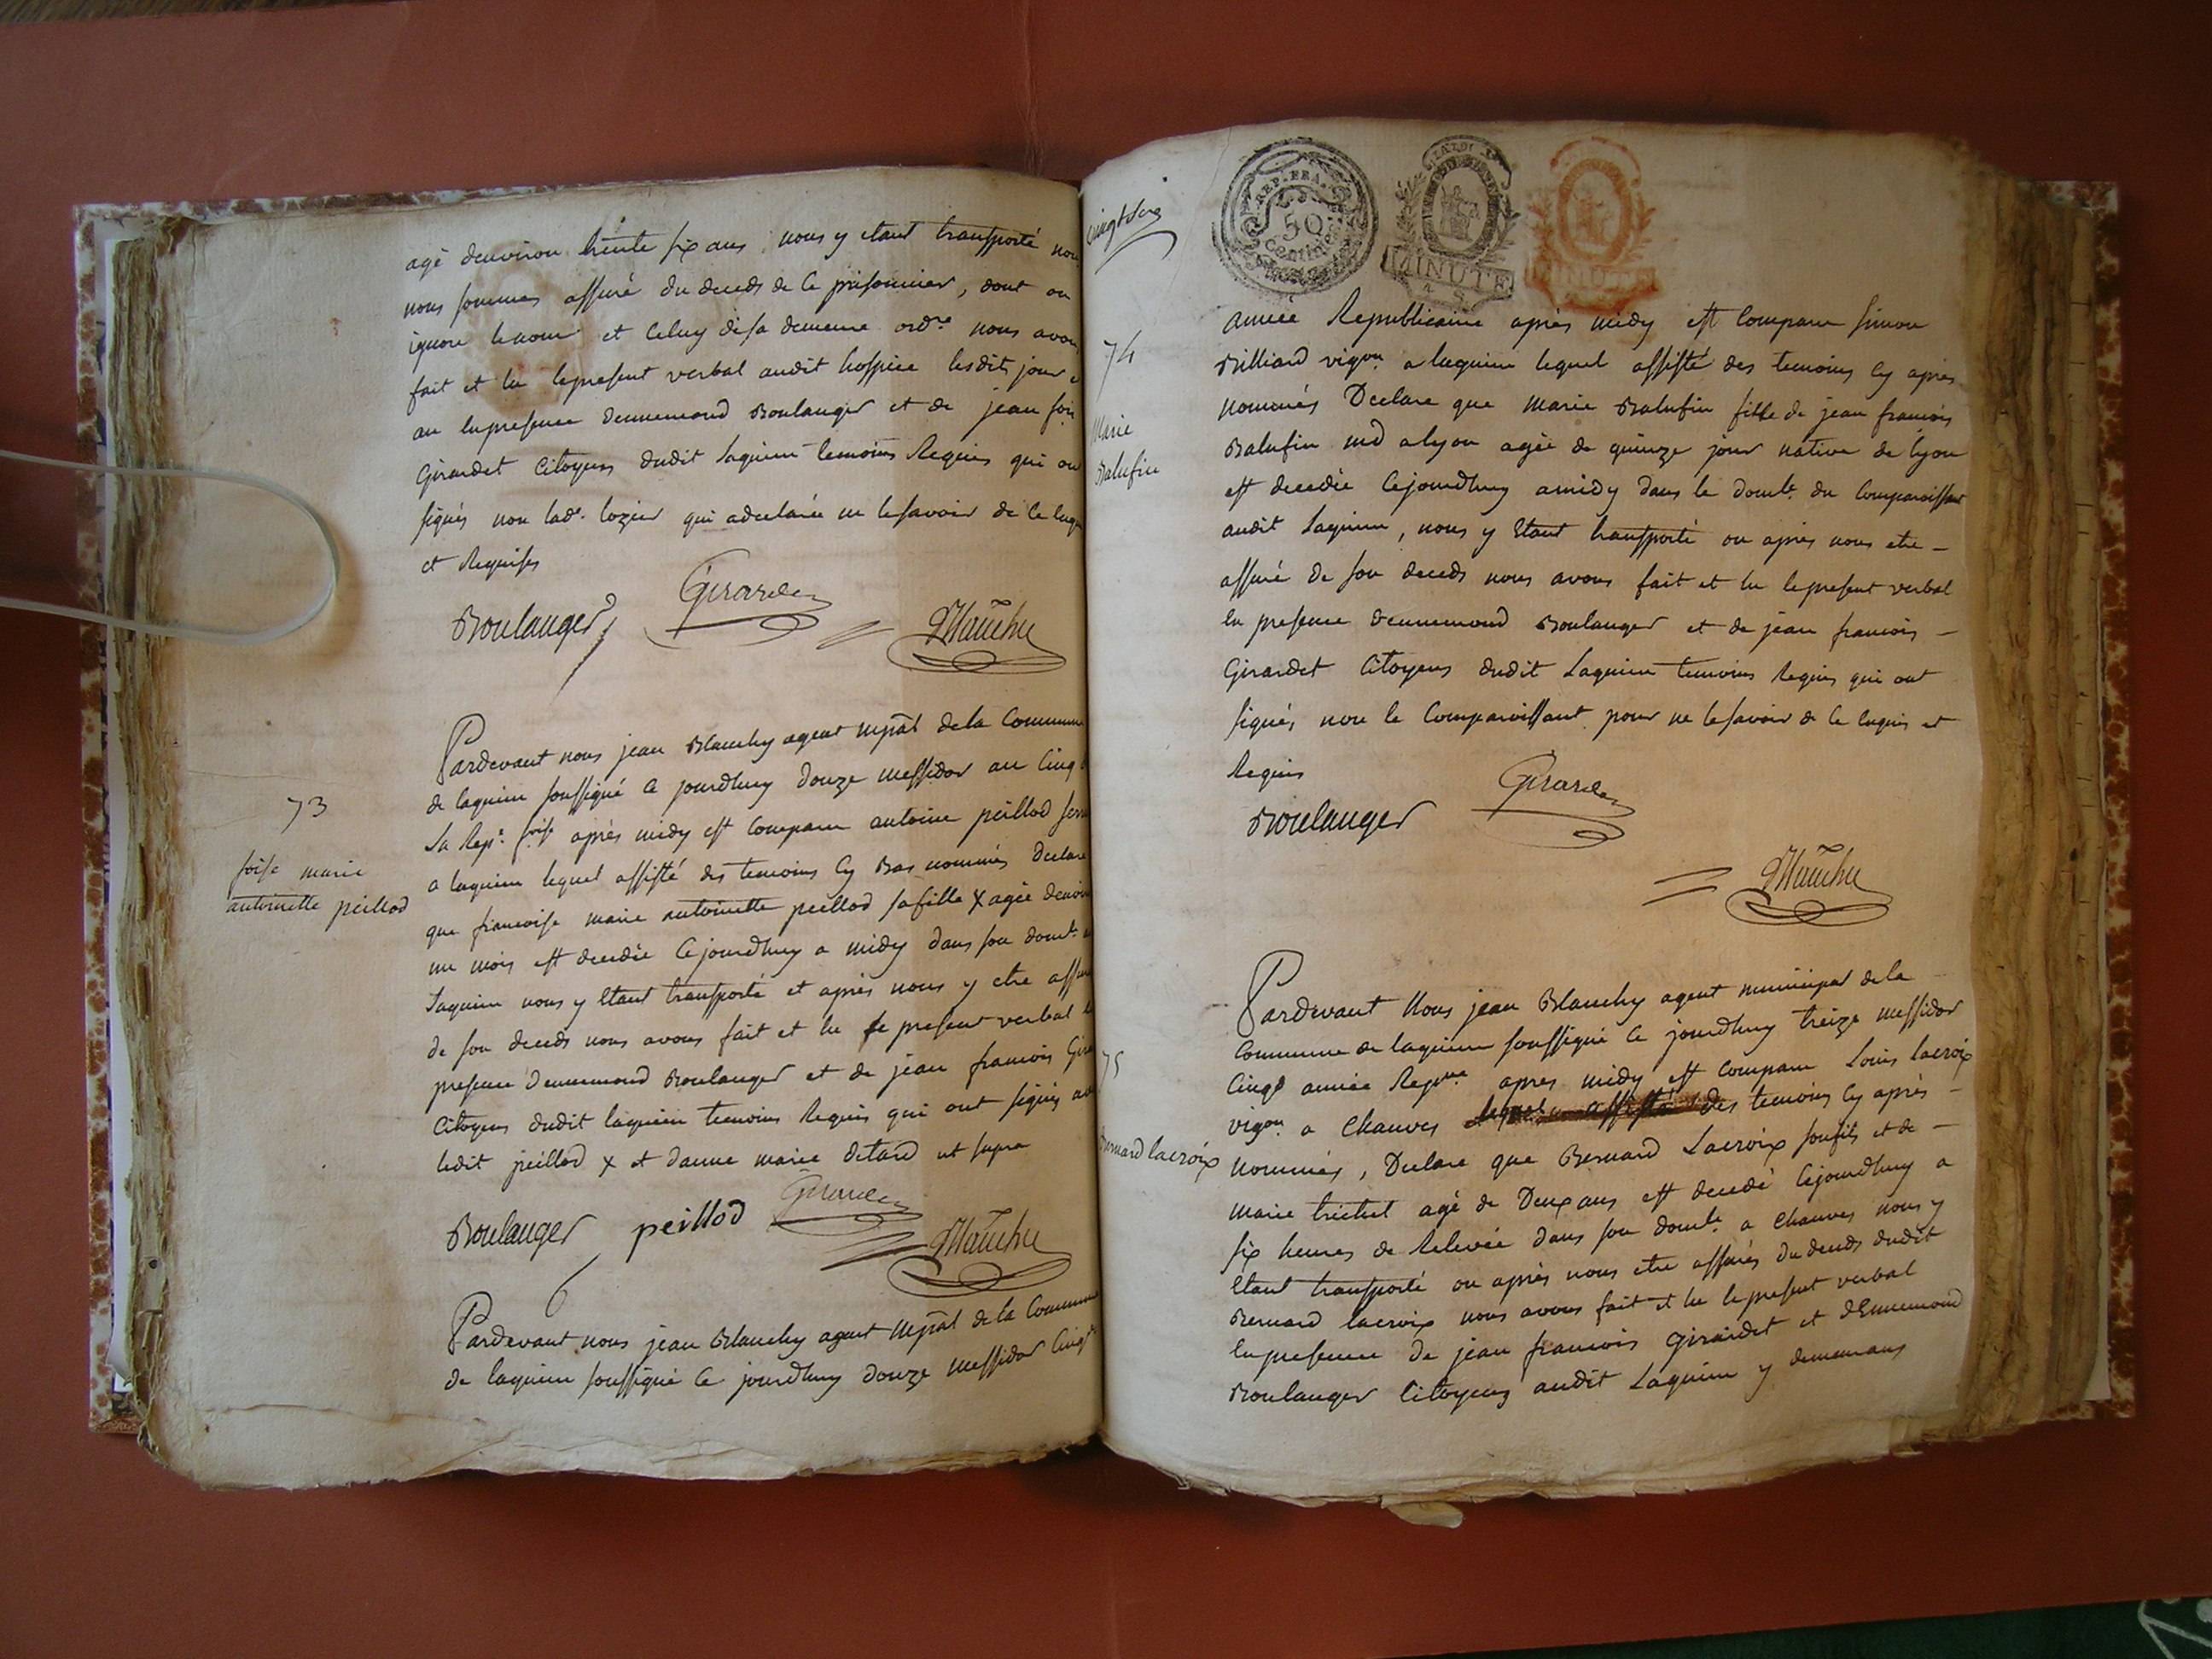 agé denviron trente six ans, nous y etant transporté
nous sommes assuré du deceds de ce prisonnier, dont on
ignore lenom et celuy desa demeure ordre nous avons
fait et lu lepresent verbal audit hospice lesdits jour
an enpresence dennemond Boulanger et de jean
Girardet Citoyens dudit Laguieu temoins Requis qui
signés non lade. lozier qui adeclarée ne lesavoir de ce
et Requises
Boulanger Girardet Blanchy
Pardevant nous jean Blanchy agent mpāl dela Commune
de laguieu soussigné ce jourdhuy douze messidor an Cinq
La Repe. après midy est comparu antoine peillod
a laguieu lequel assisté des temoins cy Bas nommés Declare
que francoise marie antoinette peillod safille x agée
un mois est decedée Cejourdhuy a midy dans son
Laguieu nous y Etant transporté et après nous y etre
de son deceds nous avons fait et lu le present verbal
presence dennemond Boulanger et de jean francois
Citoyens dudit laguieu temoins Requis qui ont signés
ledit peillod x et danne marie ut supra
73
foise marie
antoinette peillod
Boulanger peillod Girardet Blanchy
Pardevant nous jean Blanchy agent mpāl de la Commune
de laguieu soussigné ce jourdhuy douze messidor
REP. FRA.
50
Centimes
MINUTE
MINUTE
année Republicaine après midy est comparu simon
Billiard vigon. a laguieu lequel assisté des temoins cy après
nommés Declare que marie Balufin fille de jean francois
Balufin md alyon agée de quinze jour native de lyon
est decedée Cejourdhuy amidy dans le domle. du comparoissant
audit Laguieu, nous y Etant transporté ou après nous etre -
assuré de son deceds nous avons fait et lu lepresent verbal
en presence dennemond Boulanger et de jean francois -
Girardet Citoyens dudit Laguieu temoins Requis qui ont
signés, non le Comparoissant pour ne lesavoir de ce enquis et
Requis
74
Marie
Balufin
Boulanger Girardet
Blanchy
Pardevant Nous jean Blanchy agent municipal de la
Commune de laguieu soussigné ce jourdhuy treize messidor
Cinqe année Repne. apres midy est comparu Louis lacroix
vigon. a Chauves lequel assisté des temoins cy après -
nommés, Declare que Bernard Lacroix sonfils et de -
marie agé de Deux ans est decedé Cejourdhuy a
six heures de Relevée dans son domle. a Chauves nous y
Etant transporté ou après nous etre assurés du deceds dudit
Bernard lacroix nous avons fait et lu le present verbal
enpresence de jean francois Girardet et dEnnemond
Boulanger Citoyens audit Laguieu y demeurans
75
Bernard lacroix